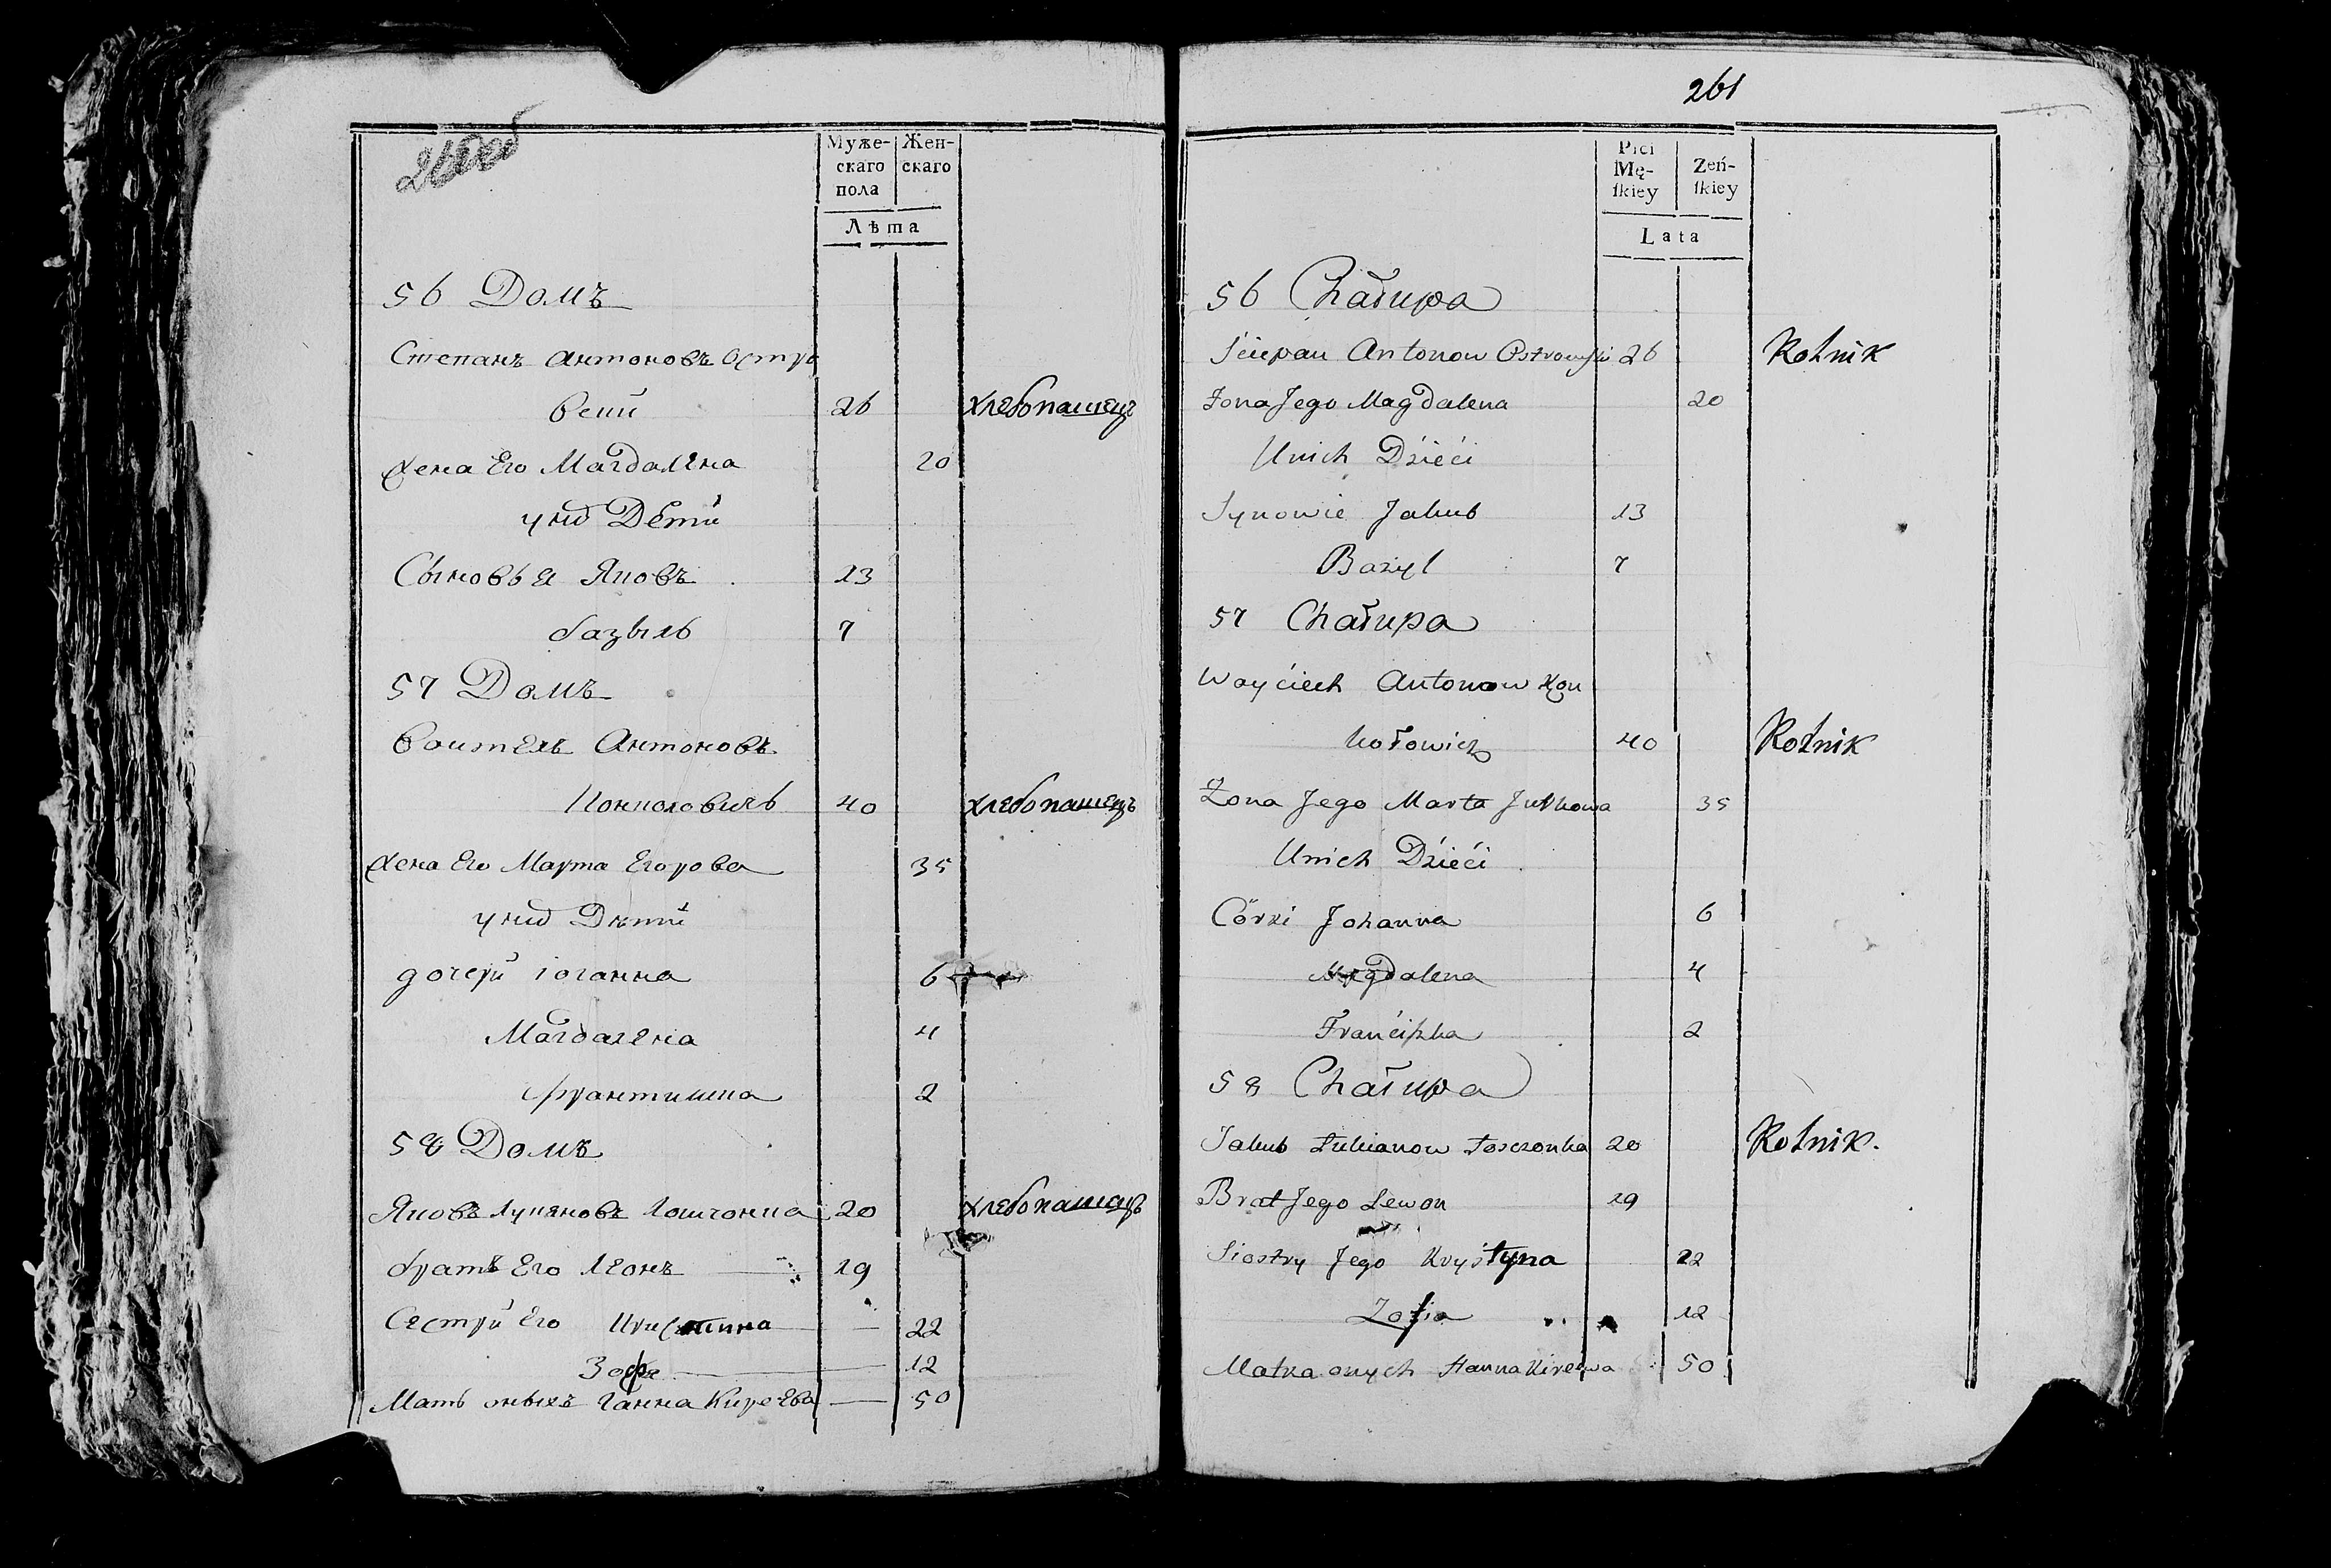 261
Муже-
скаго
пола
Жен-
скаго
Лѣта
56 Домъ
Степанъ Антоновъ Остро
вский 26 хлебопашецъ
жена Его Магдалена 20
у них Дети
Сыновья Яковъ 13
базыль 7
57 Домъ
Войтехъ Антоновъ
Конколовичъ 40 хлебопашецъ
жена Его Марта Егорова 35
у них Дети
дочери iоганна 6
Магдалена 4
франтишка 2
58 Домъ
Яковъ Лукяновъ Лошчонка 20 хлебопашецъ
братъ Его Леонъ 19
Сестры Его Кристина 22
Зофя 12
Мать оныхъ Ганна Киреева 50
Płci
Mę-
ſkiey
Zeń-
ſkiey
Lata
56 Chałupa
Sciepan Antonow Ostrowski 26 Rolnik
Zona Jego Magdalena 20
Unich Dzieći
Synowie Jakub 13
Bazyl 7
57 Chałupa
Woyćiech Antonow Kon
kołowicz 40 Rolnik
Zona Jego Marta Jurkowa 35
Unich Dzieći
Córki Johanna 6
Magdalena 4
Franćiszka 2
58 Chałupa
Jakub Łukianow Łosczonka 20 Rolnik.
Brat Jego Lewon 19
Siostry Jego Krystyna 22
Zofia 12
Matka onych Hanna Kirejewa 50